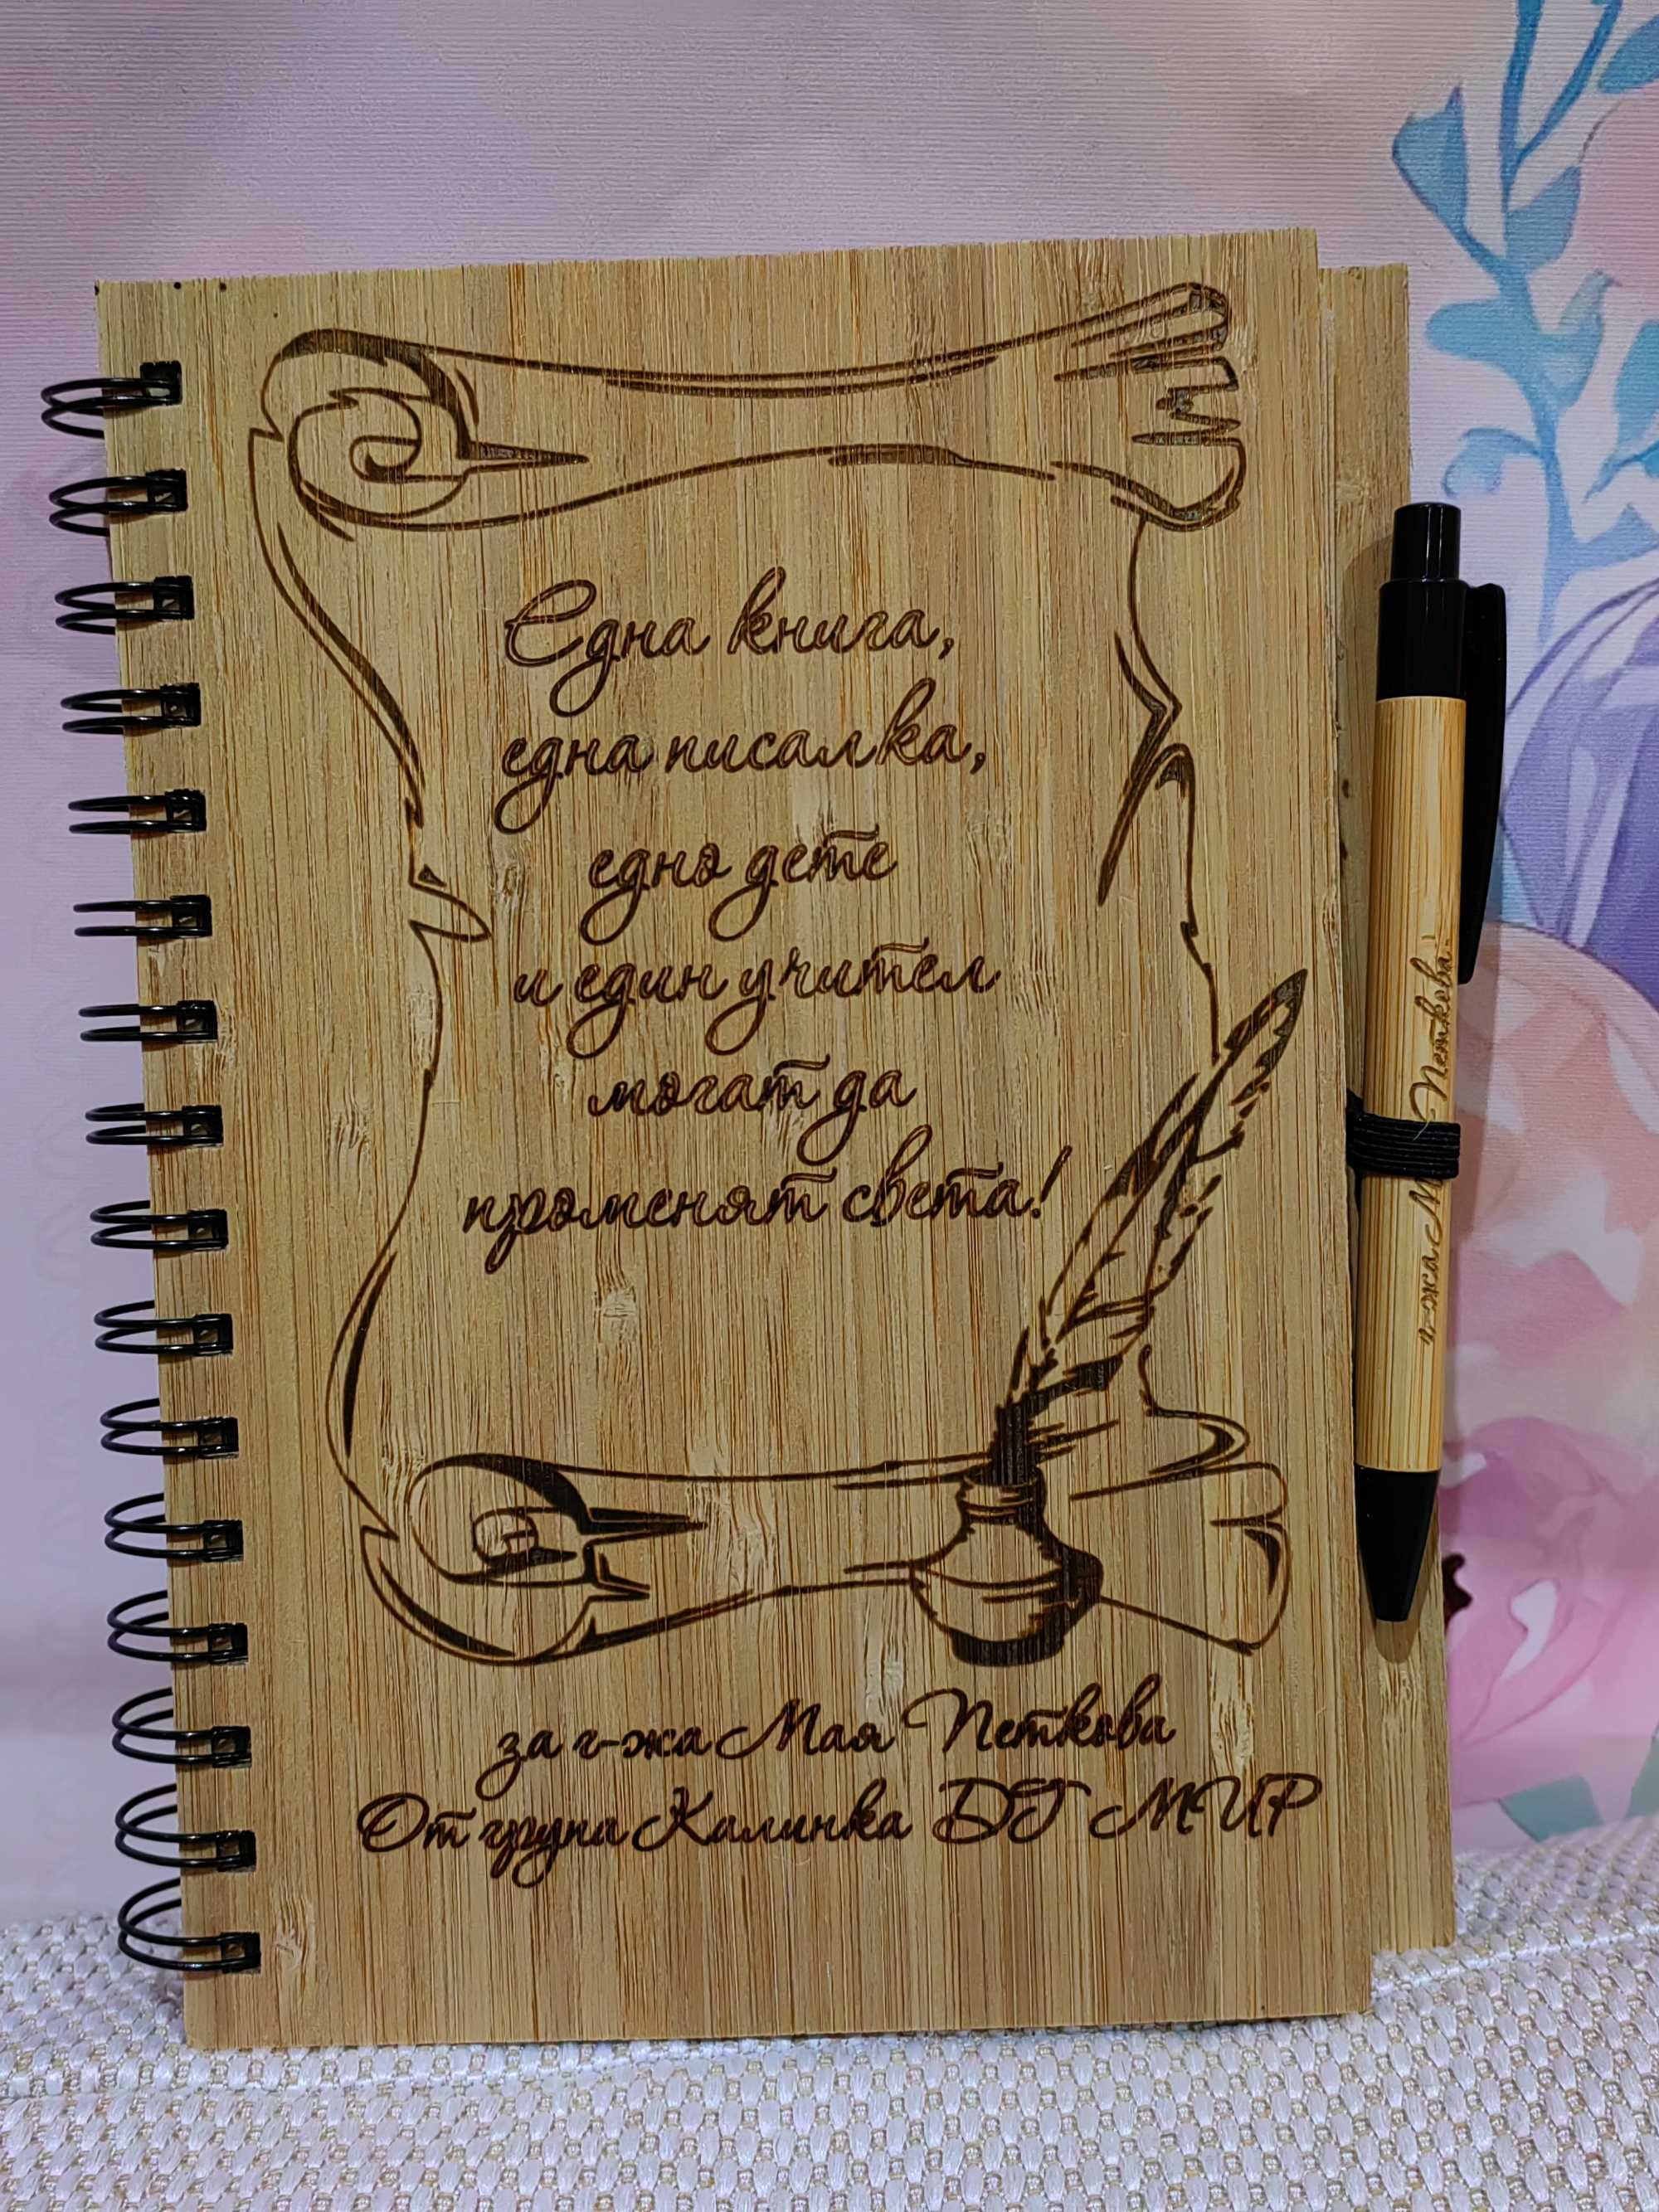 Една книга,
една писалка,
едно дете
и един учител
могат да
променят света!
за г-жа Мая Петкова
От група Калинка ДГ МИР
г-жа М Петкова